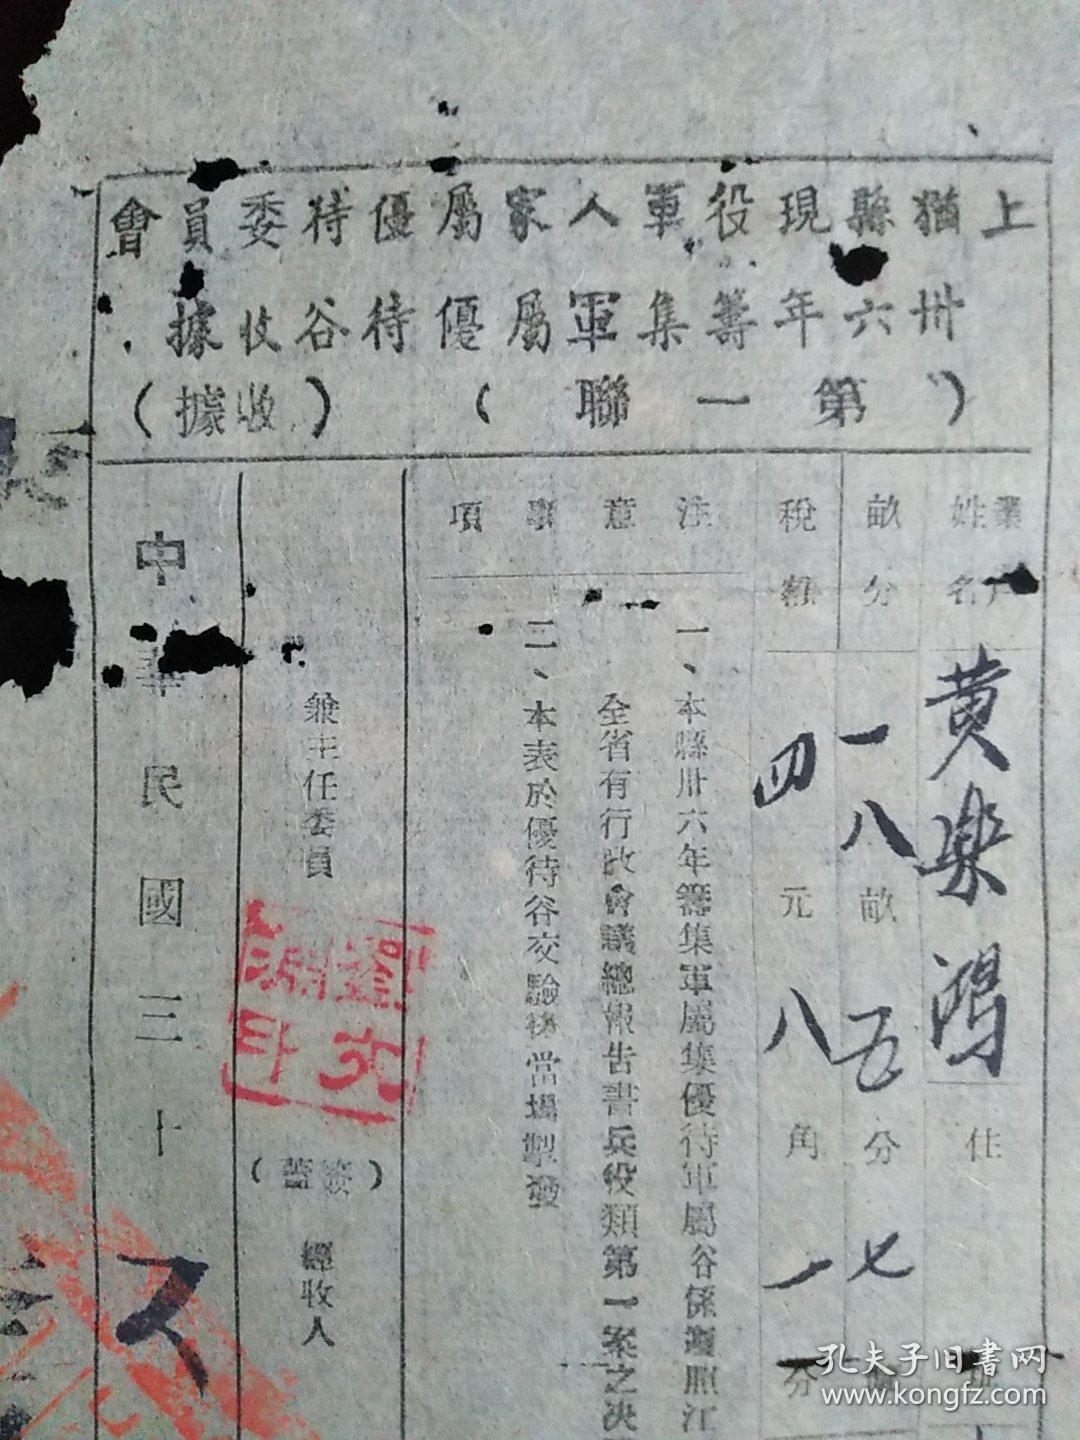 上猶縣現役軍人家屬優待委員會
卅六年籌集軍屬優待谷收據
(第一聯)(收據)
業戶姓名
黄樂鴻
住
畝分
一八畝五分七
稅額
四元八角一分
注意事項
一、本縣卅六年籌集軍屬集優待軍屬谷係遵照江
全省有行政會議總報告書兵役類第一案之决
二、本表於優待谷交驗後當場掣發
兼主任委員
(蓋簽)
經收人
中華民國三十
孔夫子旧書网
www.kongfz.com